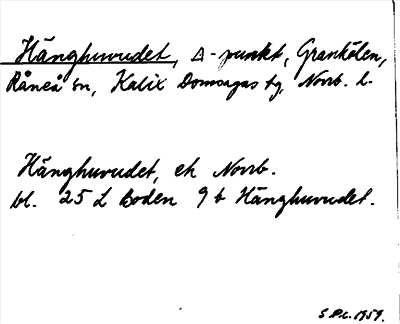 Hänghuvudet, △-punkt, Grankölen,
Råneå sn, Kalix Domsagas tg, Norrb. l.
Hänghuvudet, ek Norrb.
bl. 25 L Boden 9 b Hänghuvudet.
1959.